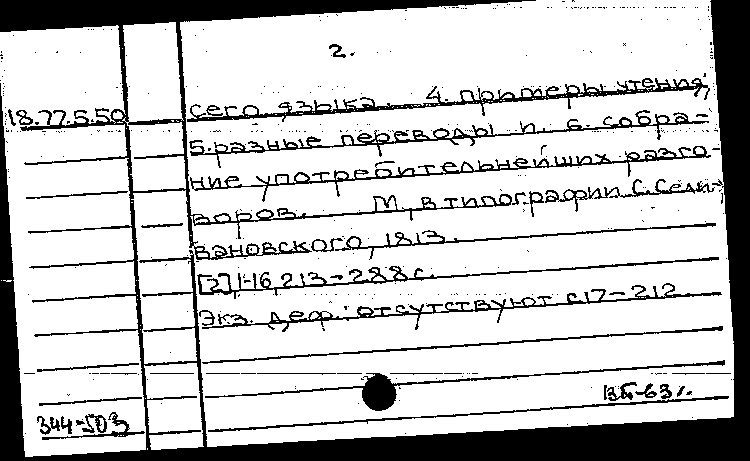 2.
18.77.5.50 сего языка. 4. примеры чтения,
5. разные переводы и 6. собра-
ние употребительнейших разго-
воров. М, в типографии С. Сели-
вановского, 1813.
[2], 1-16, 213-288 с.
Экз. деф.: отсутствуют с 17-212
344-503